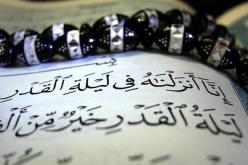 إِنَّا أَنزَلْنَاهُ فِي لَيْلَةِ الْقَدْرِ
لَيْلَةُ الْقَدْرِ خَيْرٌ مِّنْ